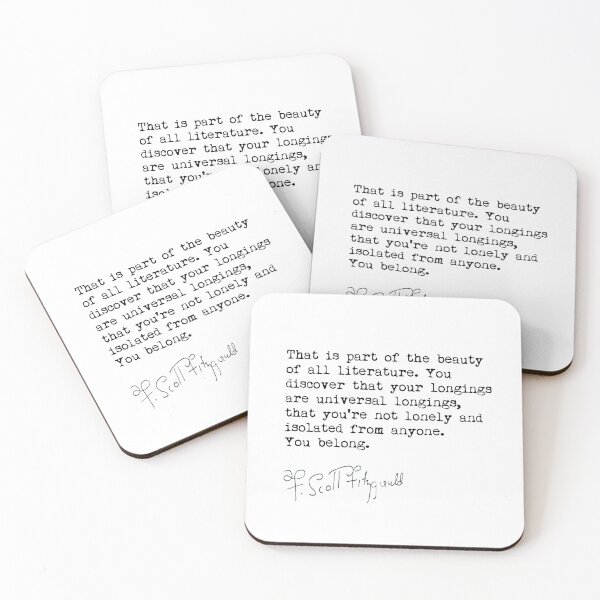 That is part of the beauty
of all literature. You
discover that your longings
are universal longings,
that you're not lonely and
That is part of the beauty
of all literature. You
discover that your longings
are universal longings,
that you're not lonely and
isolated from anyone.
You belong.
That is part of the beauty
of all literature. You
discover that your longings
are universal longings,
that you're not lonely and
isolated from anyone.
You belong.
F. Scott Fitzgerald
That is part of the beauty
of all literature. You
discover that your longings
are universal longings,
that you're not lonely and
isolated from anyone.
You belong.
F. Scott Fitzgerald